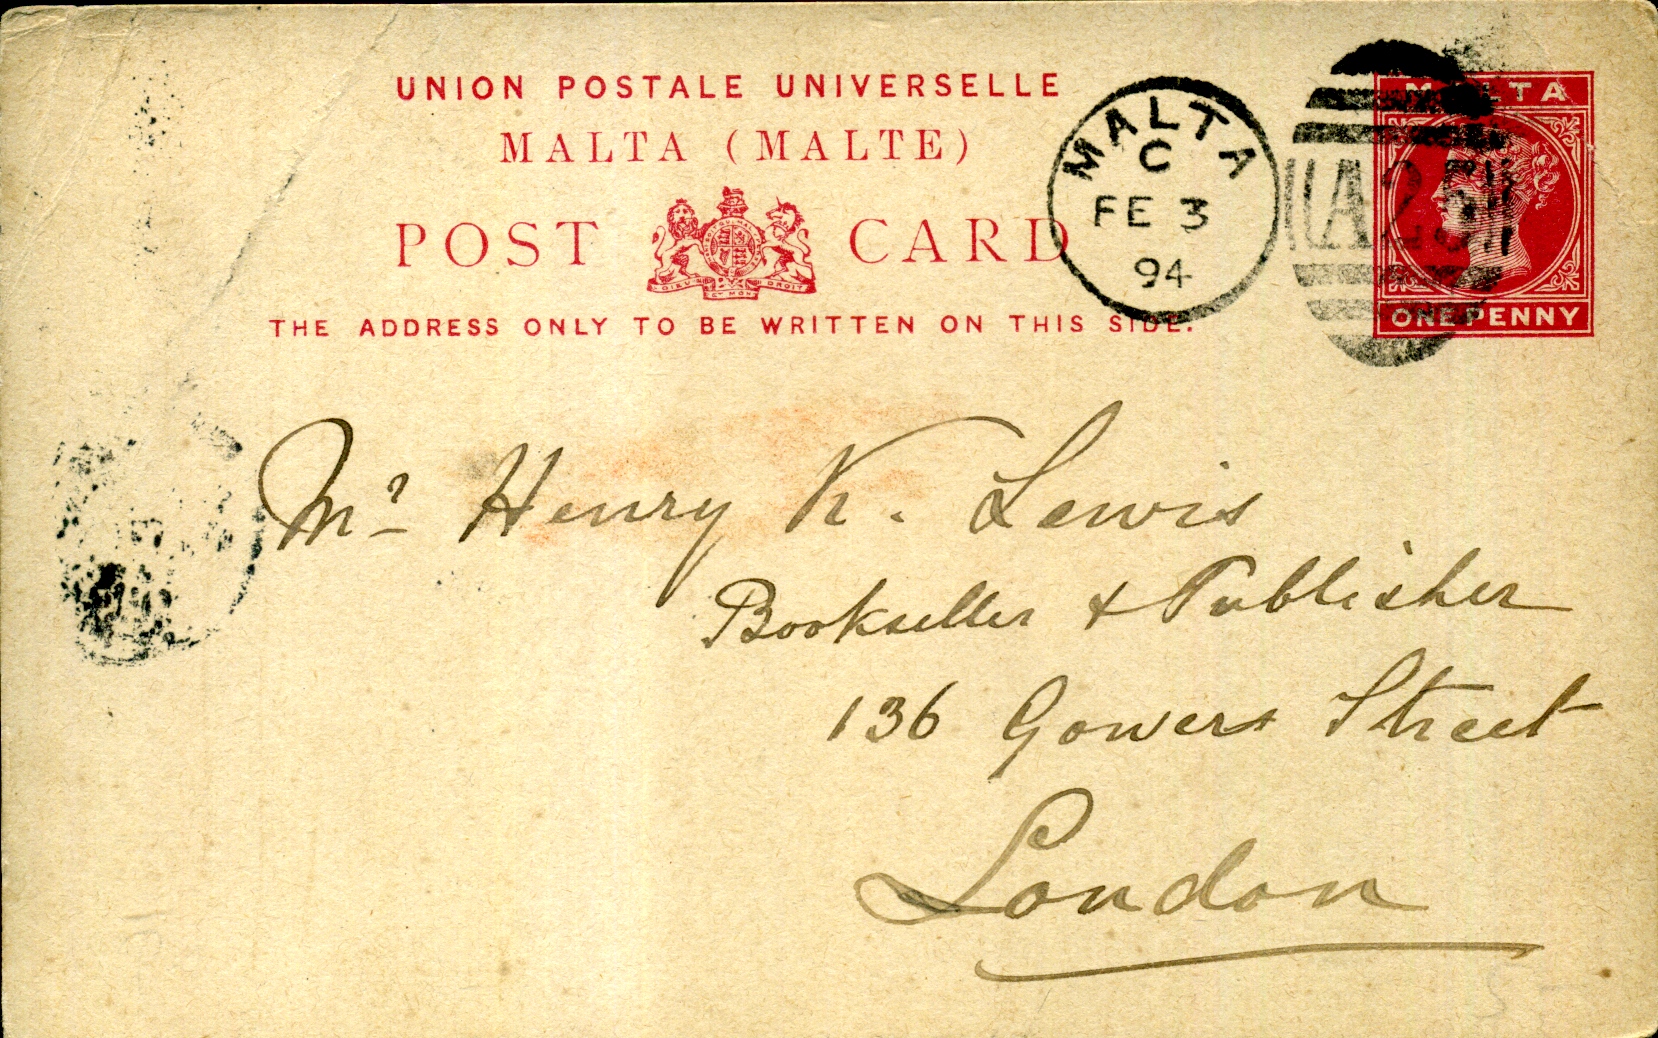 UNION POSTALE UNIVERSELLE
MALTA (MALTE)
POST CARD
DIEU ET MON DROIT
THE ADDRESS ONLY TO BE WRITTEN ON THIS SIDE.
MALTA
C
FE 3
94
A25
MALTA
ONE PENNY
Mr Henry K. Lewis
Bookseller & Publisher
136 Gowers Street
London